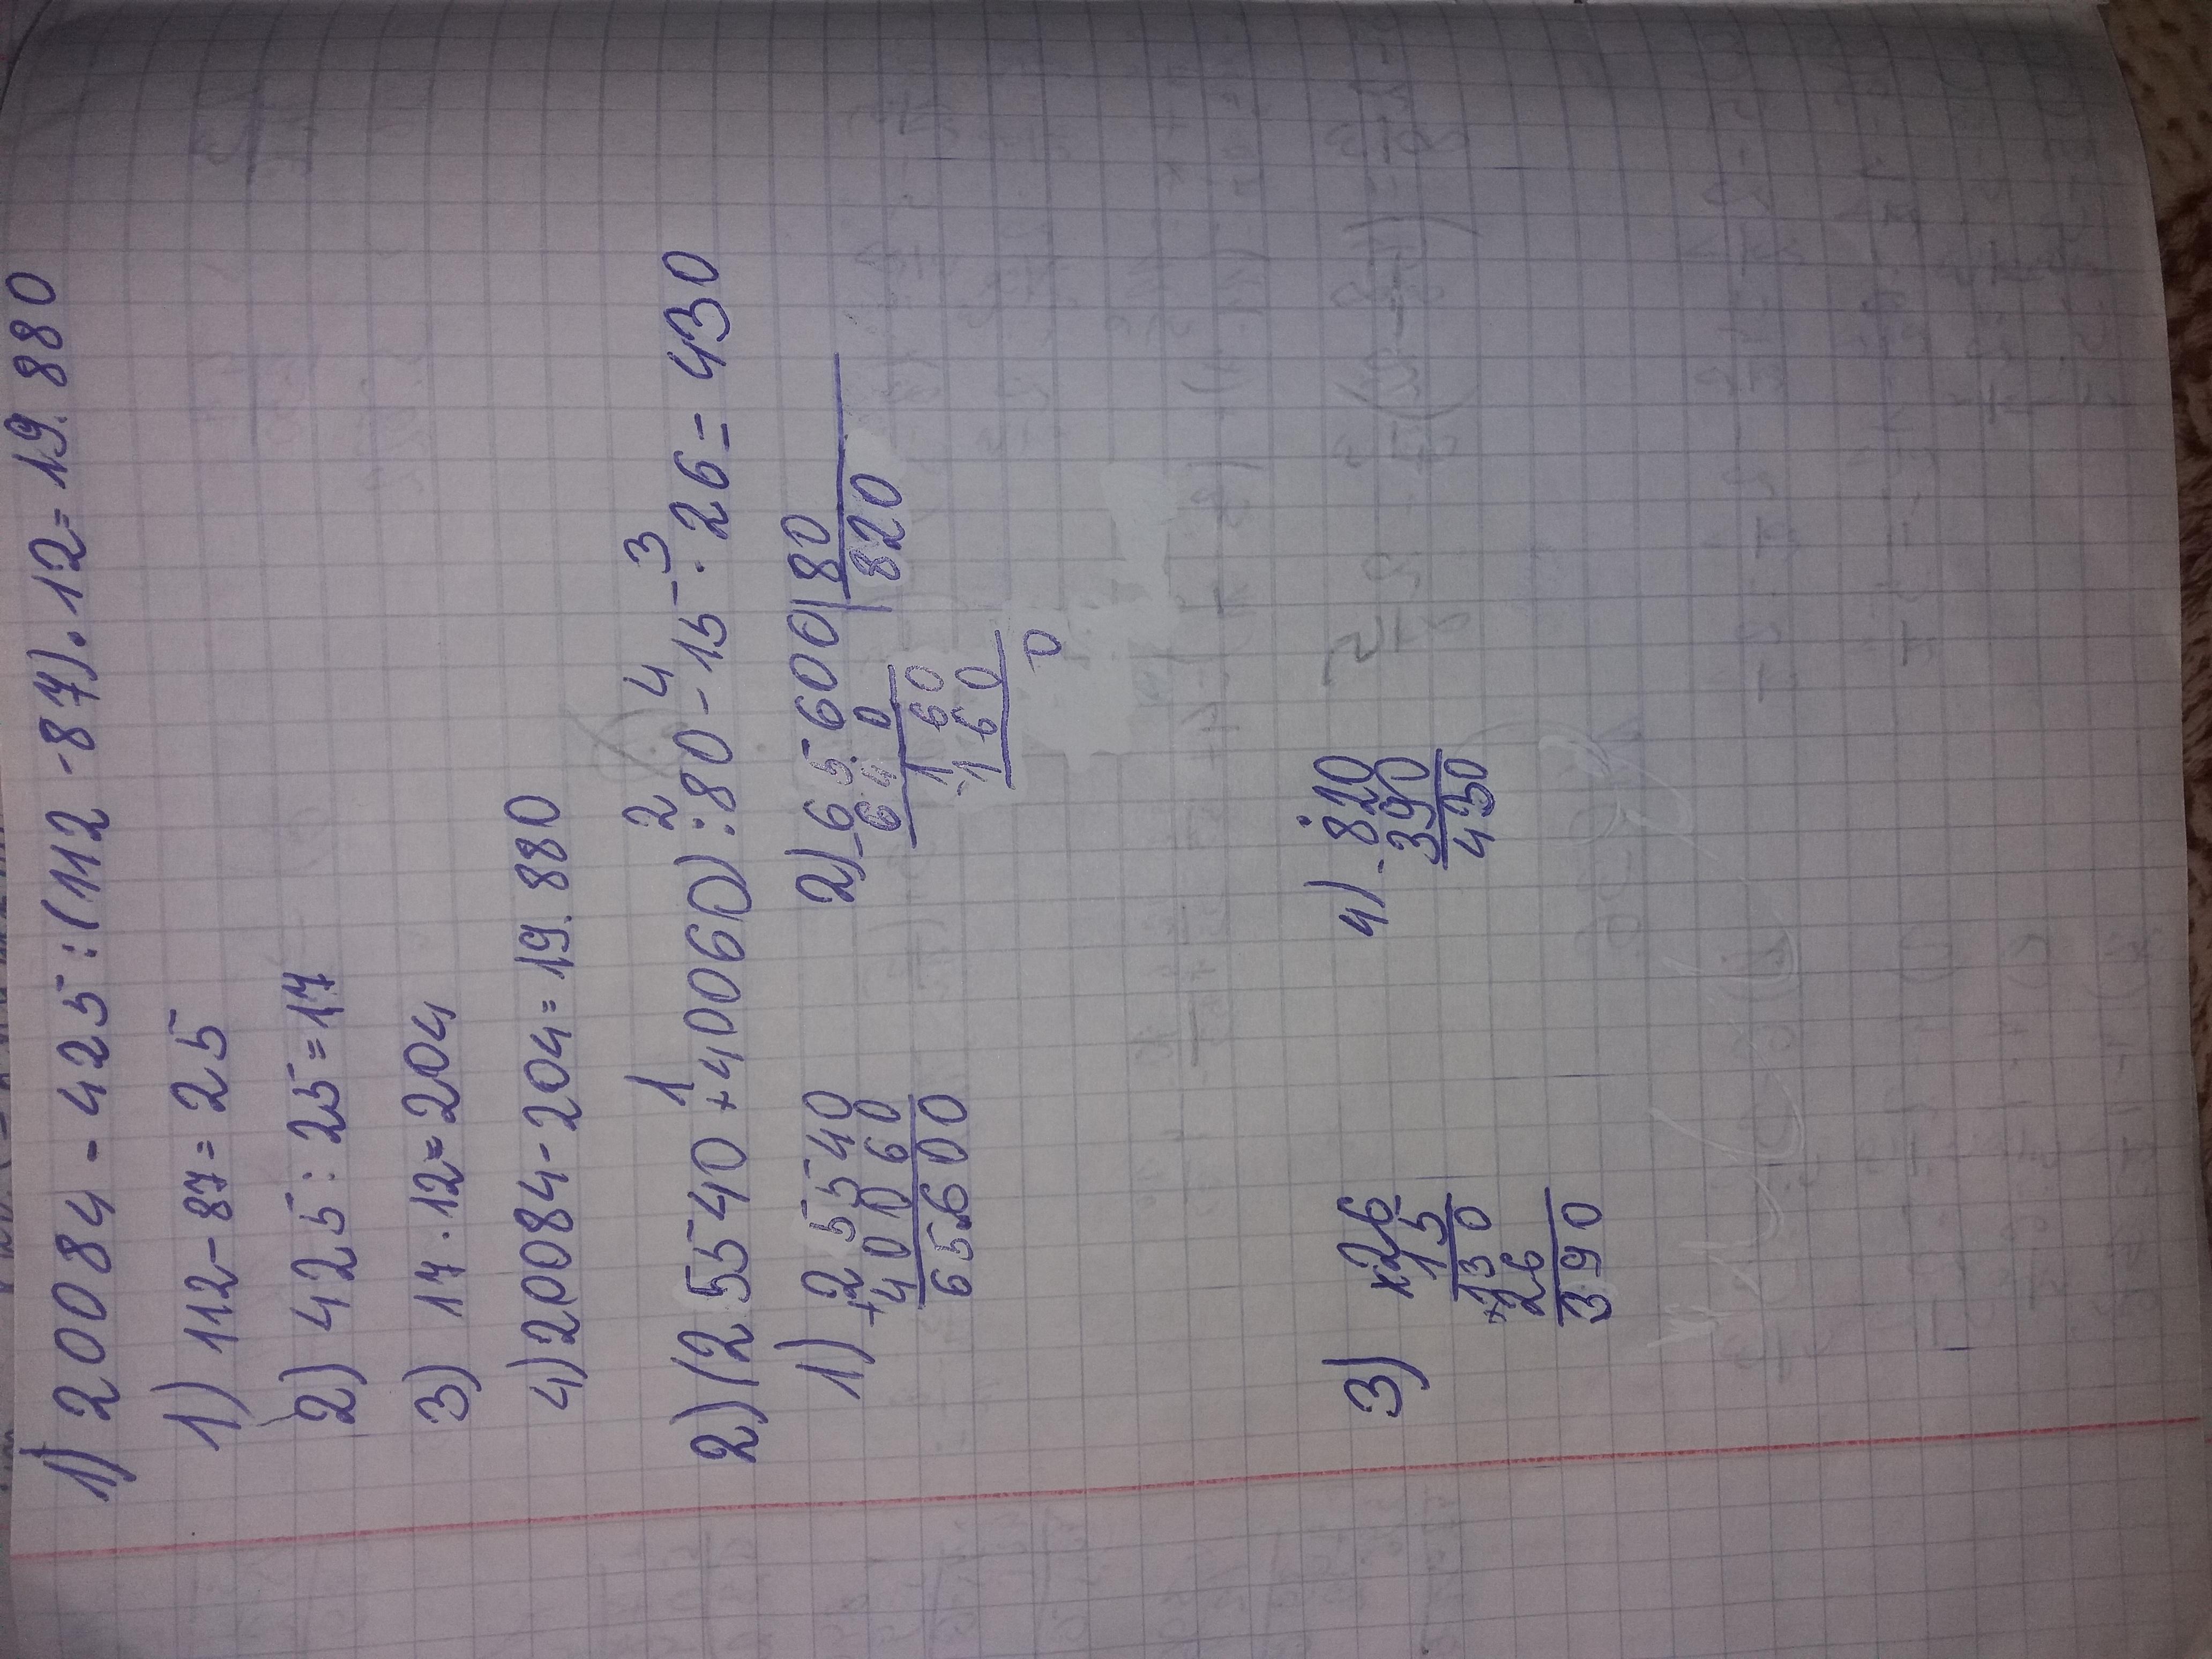 1) 20084 - 425 : (112 - 87) . 12 = 19.880
1) 112 - 87 = 25
2) 425 : 25 = 17
3) 17 . 12 = 204
4) 20084 - 204 = 19.880
1 2 4 3
2) (25540 + 40060) : 80 - 15 . 26 = 430
1) + 25540
40060
65.600
2) - 65600 | 80
640 | 820
160
- 160
0
3) x 26
15
130
+ 26
390
4) - 820
390
430